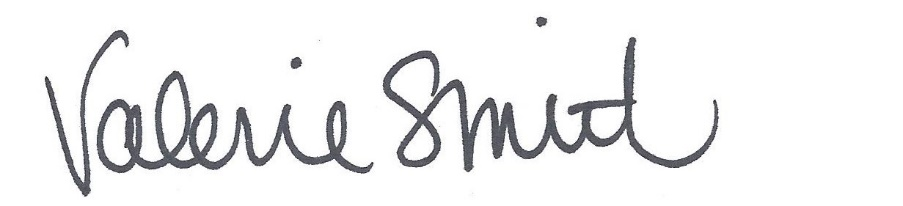 Valerie Smith